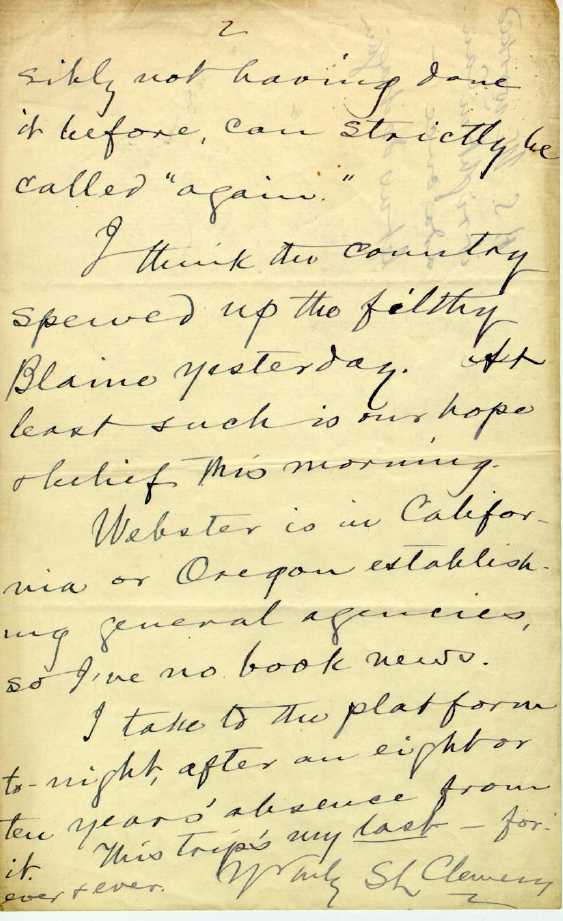 2
sibly not having done
it before, can strictly be
called "again."
I think the country
spewed up the filthy
Blaine yesterday. At
least such is our hope
& belief this morning.
Webster is in Califor-
nia or Oregon establish-
ing general agencies,
so I've no book news.
I take to the platform
to-night, after an eight or
ten years' absence from
it. This trip's my last — for-
ever & ever. Yrs truly SL Clemens